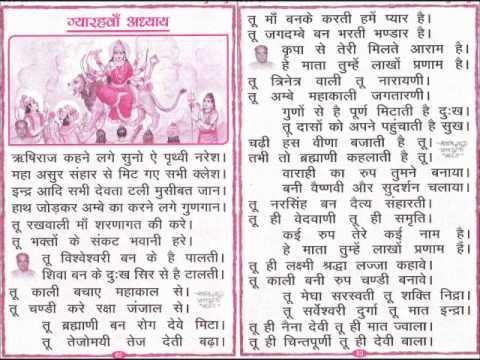 ग्यारहवाँ अध्याय
ऋषिराज कहने लगे सुनो ऐ पृथ्वी नरेश।
महा असुर संहार से मिट गए सभी क्लेश।
इन्द्र आदि सभी देवता टली मुसीबत जान।
हाथ जोड़कर अम्बे का करने लगे गुणगान।
तू रखवाली माँ शरणागत की करे।
तू भक्तों के संकट भवानी हरे।
तू विश्वेश्वरी बन के है पालती।
शिवा बन के दुःख सिर से है टालती।
तू काली बचाए महाकाल से।
तू चण्डी करे रक्षा जंजाल से।
तू ब्रह्माणी बन रोग देवे मिटा।
तू तेजोमयी तेज देती बढ़ा।
तू माँ बनके करती हमें प्यार है।
तू जगदम्बे बन भरती भण्डार है।
कृपा से तेरी मिलते आराम है।
हे माता तुम्हें लाखों प्रणाम है।
तू त्रिनेत्र वाली तू नारायणी।
तू अम्बे महाकाली जगतारणी।
गुणों से है पूर्ण मिटाती है दुःख।
तू दासों को अपने पहुंचाती है सुख।
चढ़ी हस वीणा बजाती है तू।
तभी तो ब्रह्माणी कहलाती है तू।
वाराही का रुप तुमने बनाया।
बनी वैष्णवी और सुदर्शन चलाया।
तू नरसिंह बन दैत्य संहारती।
तू ही वेदवाणी तू ही स्मृति।
कई रुप तेरे कई नाम है।
हे माता तुम्हें लाखों प्रणाम हैं।
तू ही लक्ष्मी श्रद्धा लज्जा कहावे।
तू काली बनी रुप चण्डी बनावे।
तू मेघा सरस्वती तू शक्ति निद्रा।
तू सर्वेश्वरी दुर्गा तू मात इन्द्रा।
तू ही नैना देवी तू ही मात ज्वाला।
तू ही चिन्तपूर्णी तू ही देवी बाला।